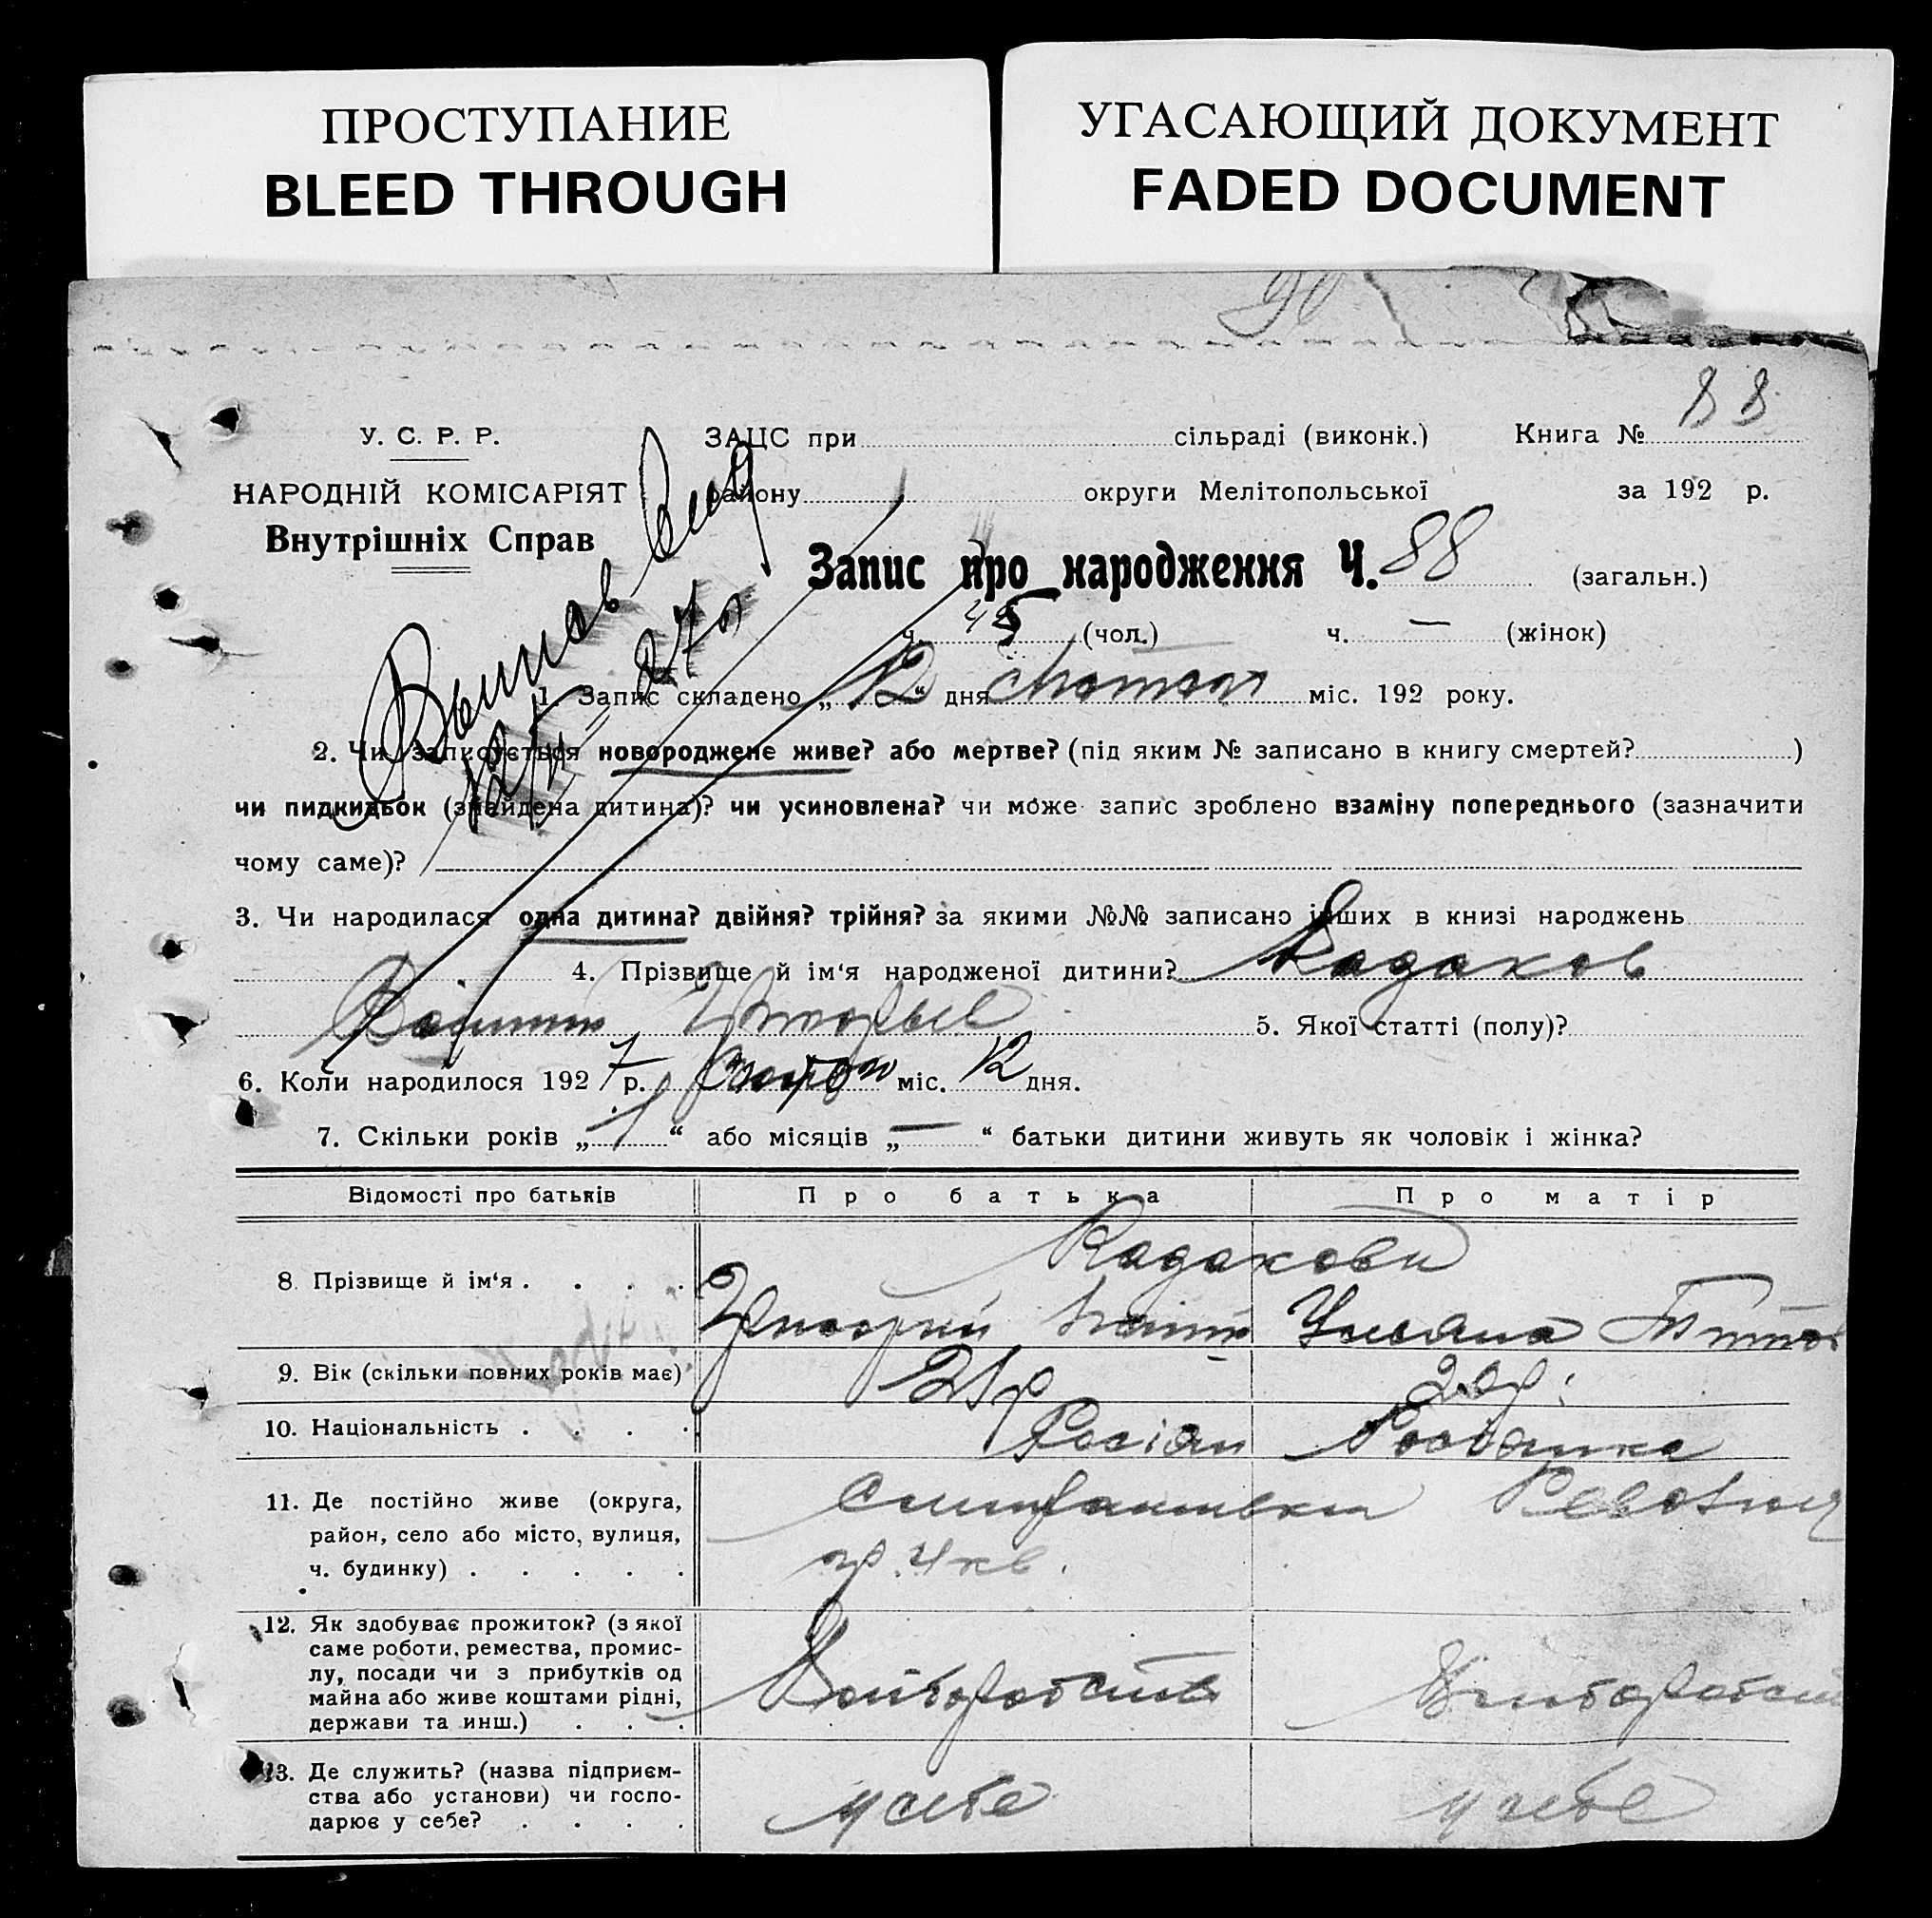 ПРОСТУПАНИЕ
BLEED THROUGH
УГАСАЮЩИЙ ДОКУМЕНТ
FADED DOCUMENT
90
88
У. С. Р. Р.
ЗАЦС при сільраді (виконк.) Книга №
НАРОДНІЙ КОМІСАРІЯТ
району округи Мелітопольської за 192 р.
Внутрішніх Справ
Запис про народження Ч. 88 (загальн.)
ч. 45 (чол.) ч. — (жінок)
1. Запис складено „12“ дня міс. 192 року.
2. Чи записується новороджене живе? або мертве? (під яким № записано в книгу смертей? )
чи пидкидьок (знайдена дитина)? чи усиновлена? чи може запис зроблено взаміну попереднього (зазначити
чому саме)?
3. Чи народилася одна дитина? двійня? трійня? за якими №№ записано інших в книзі народжень
4. Прізвище й ім‘я народженої дитини? Кадаков
5. Якої статті (полу)?
6. Коли народилося 1927 р. міс. 12 дня.
7. Скільки років „1“ або місяців „—“ батьки дитини живуть як чоловік і жінка?
Відомості про батьків Про батька Про матір
Кадакови
8. Прізвище й ім‘я . . . .
9. Вік (скільки повних років має) 21 р 20 р.
10. Національність . . . . Росіян Росіянка
11. Де постійно живе (округа,
район, село або місто, вулиця,
ч. будинку) . . . . .
12. Як здобуває прожиток? (з якої
саме роботи, ремества, промис-
лу, посади чи з прибутків од
майна або живе коштами рідні,
держави та инш.) . . .
13. Де служить? (назва підприєм-
ства або установи) чи госпо-
дарює у себе? . . . .
у себе у себе